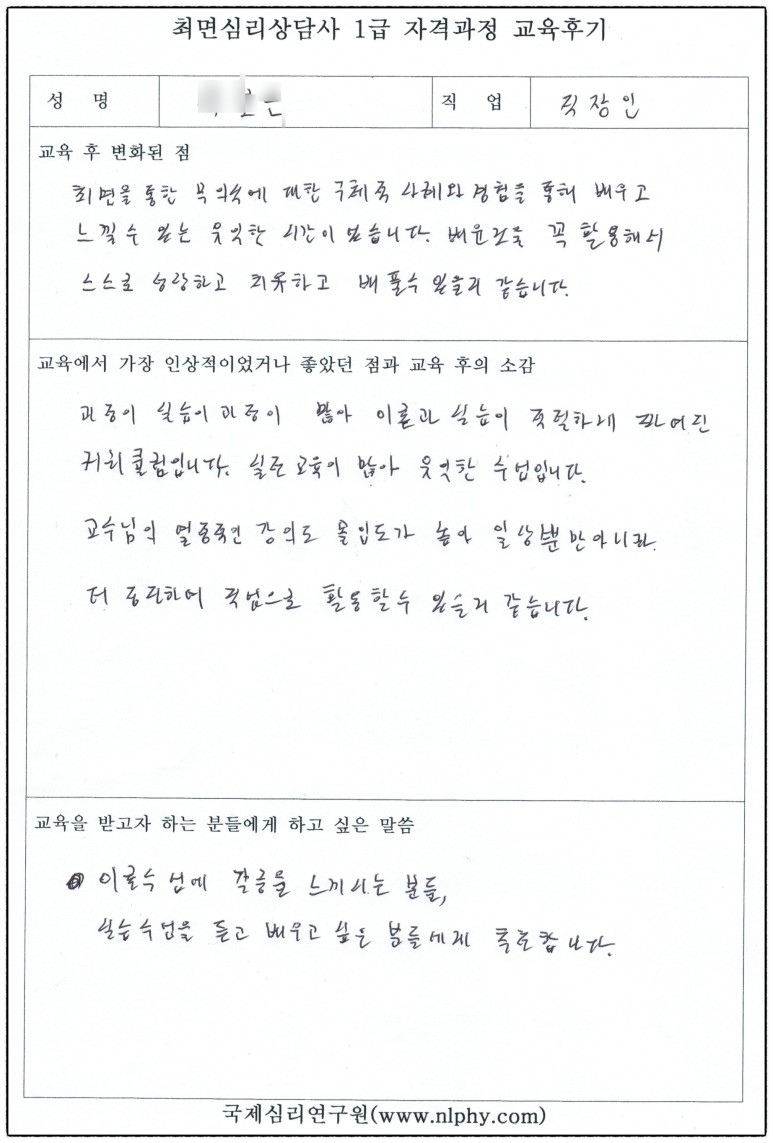 최면심리상담사 1급 자격과정 교육후기
성 명
직 업 직장인
교육 후 변화된 점
최면을 통한 무의식에 대한 구체적 사례와 경험을 통해 배우고
느낄수 있는 유익한 시간이 었습니다. 배운것을 꼭 활용해서
스스로 성장하고 치유하고 베풀수 있을거 같습니다.
교육에서 가장 인상적이었거나 좋았던 점과 교육 후의 소감
과정이 실습이 과정이 많아 이론과 실습이 적절하게 짜여진
커리큘럼입니다. 실전교육이 많아 유익한 수업입니다.
교수님의 열정적인 강의도 몰입도가 높아 일상뿐만아니라
더 하여 직업으로 활용할수 있을거 같습니다.
교육을 받고자 하는 분들에게 하고 싶은 말씀
이론수업에 갈증을 느끼시는 분들,
실습수업을 듣고 배우고 싶은 분들에게 합니다.
국제심리연구원(www.nlphy.com)